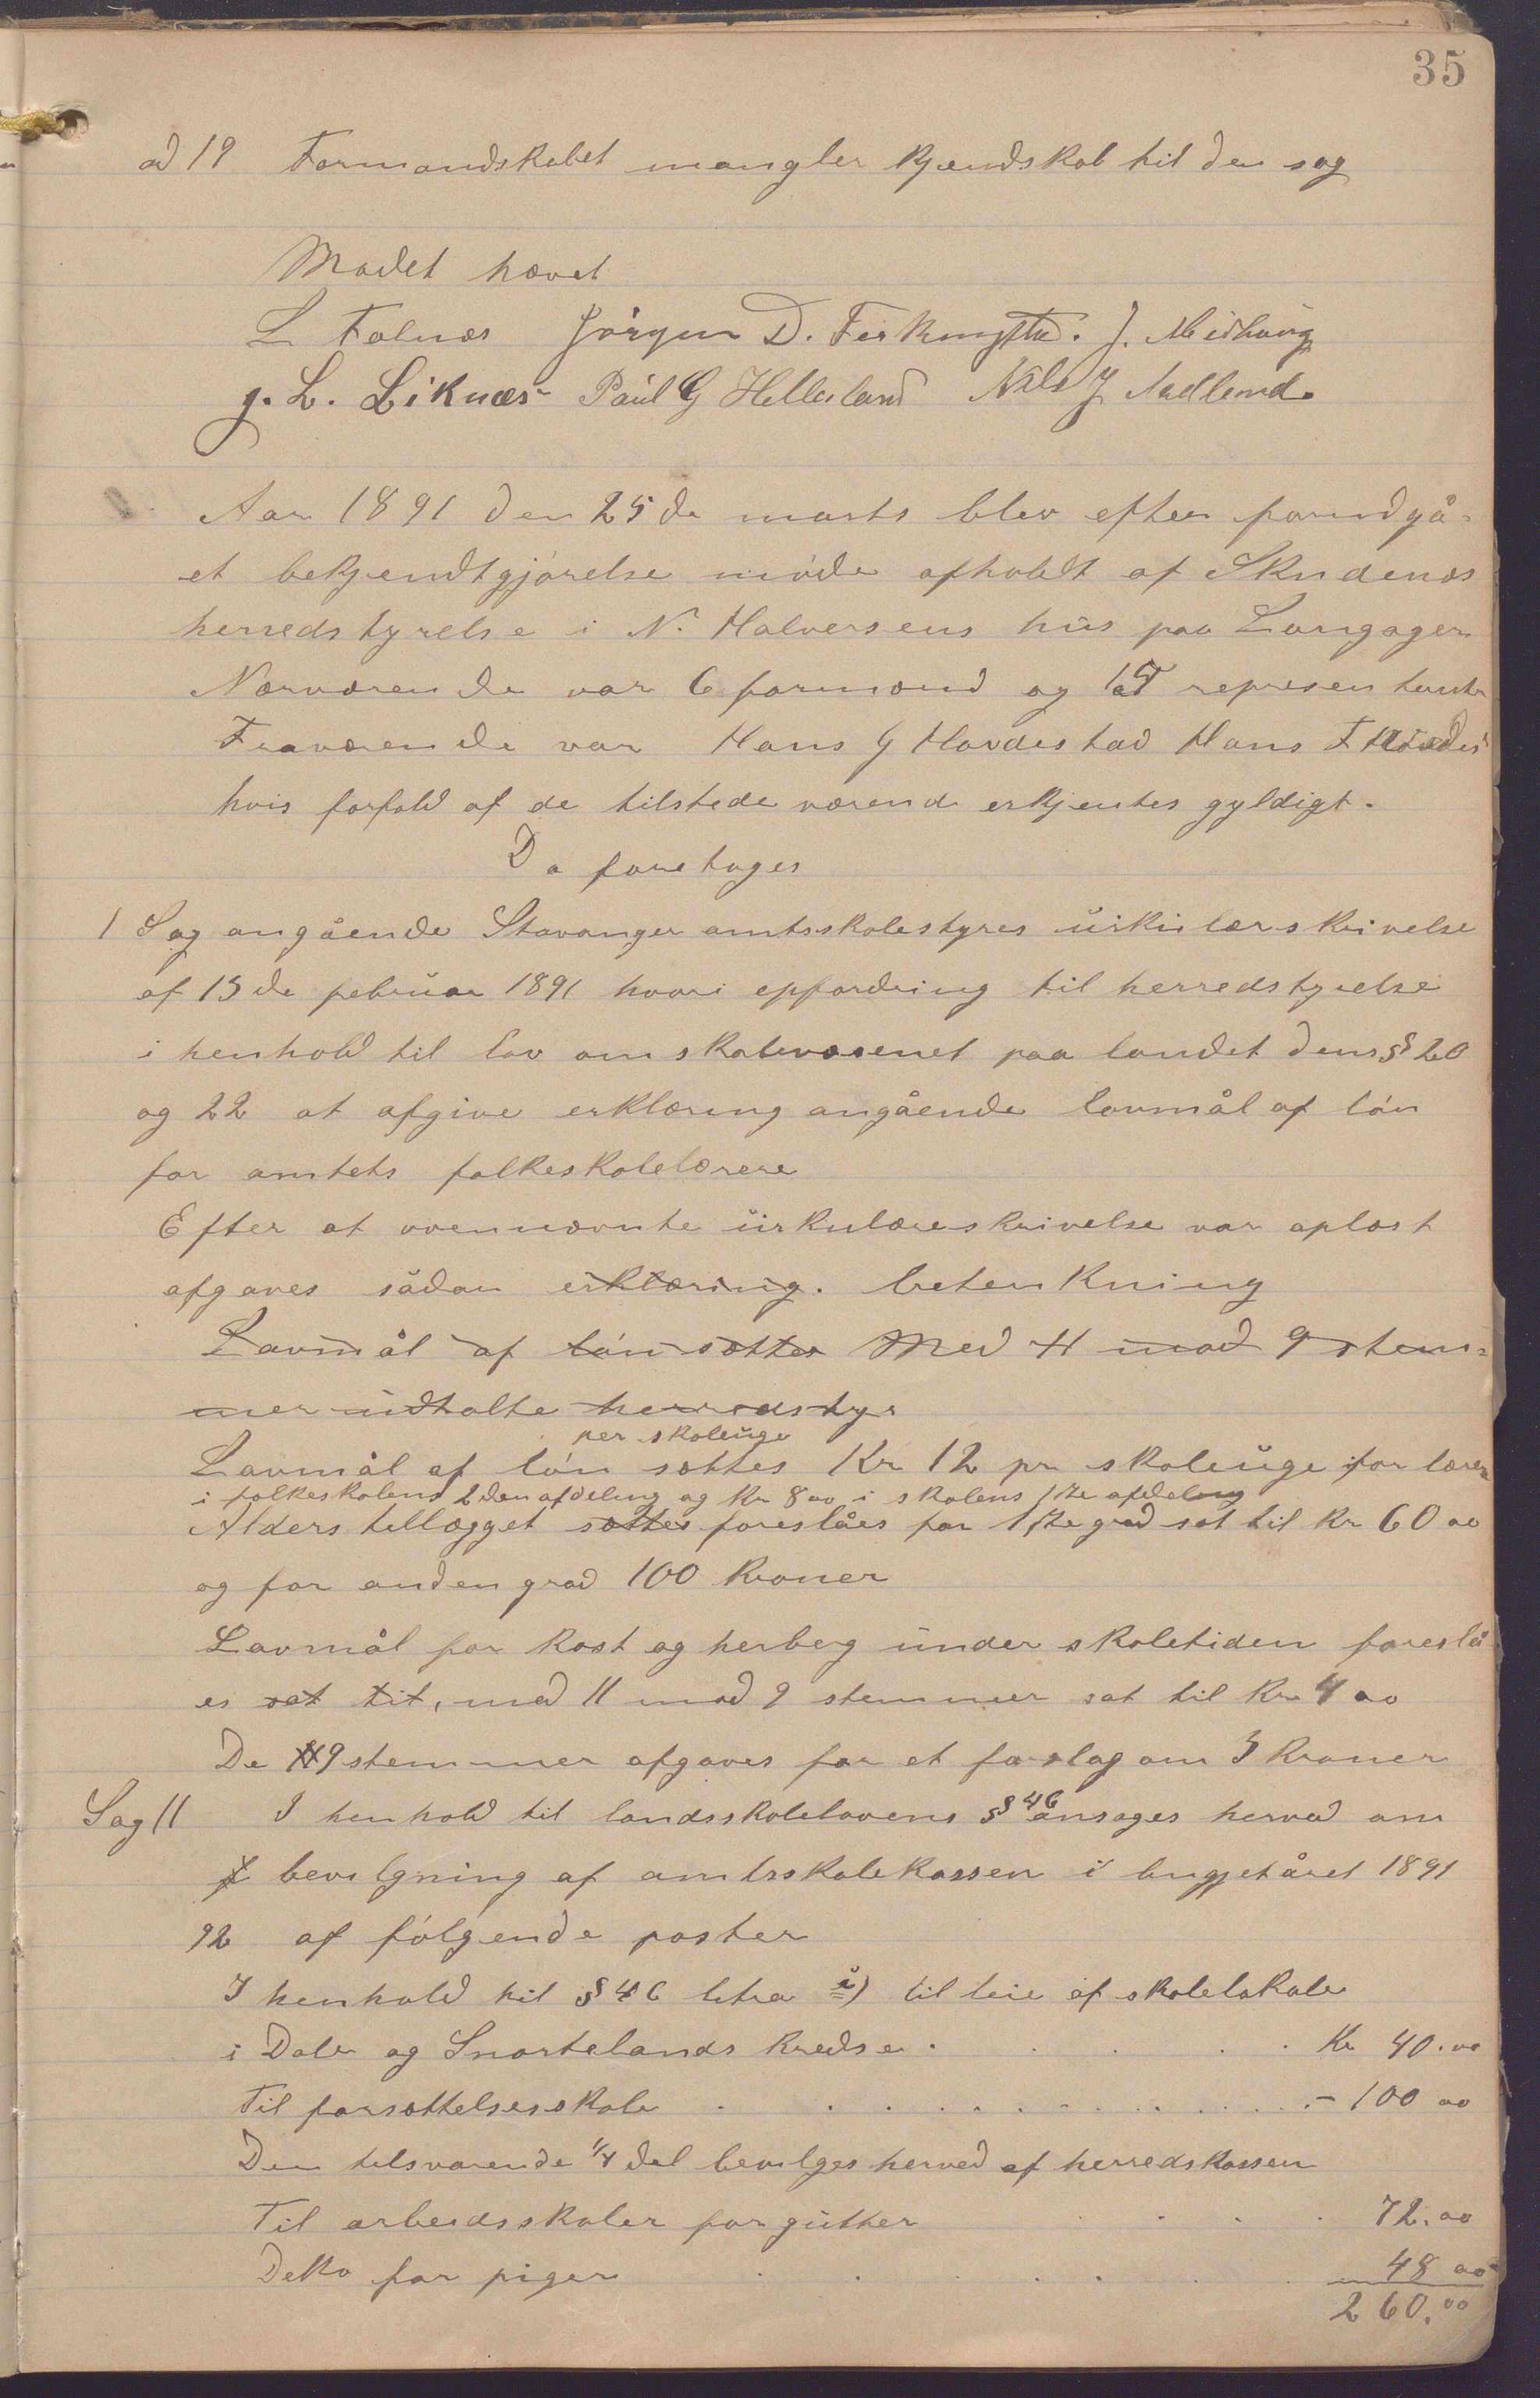 35
ad 19 Formandskabet mangler kjendskab til den sag
Mødet hævet
L Falnæs Jørgen D. Ferkingstad. J. Midhaug
g. L. Liknæs Paul G Hellesland Nils J Aadland.
Aar 1891 den 25de marts blev efter forudgå-
et bekjendtgjørelse møde afholdt af Skudenæs
herredstyrelse i N. Halversens hus paa Langager
Nærværende var 6 formænd og representanter
Fraværende var Hans G Hovdestad Hans F
hvis forfald af de tilstedeværend erkjentes gyldigt.
Da foretages
1 Sag angående Stavanger amtsskolestyres sirkulærskrivelse
af 13de februar 1891 hvori opfordring til herredstyrelse
i henhold til lov om skolevæsenet paa landet dens §§ 20
og 22 at afgive erklæring angående lavmål af løn
for amtets folkeskolelærere
Efter at ovennævnte sirkulæreskrivelse var oplæst
afgaves sådan erklæring. betenkning
Lavmål af løn sættes Med 11 mod 9 stem-
mer udtalte herredsty
per skoleuge
Lavmål af løn sættes Kr 12 pr skoleuge for lærer
i folkeskolens 2den afdeling og Kr 8 00 i skolens 1ste afdeling
Alders tellægget sættes foreslåes for 1ste grad sat til Kr 60 00
og for anden grad 100 kroner
Lavmål for kost og herberg under skoletiden foreslå
es sat til, med 11 mod 9 stemmer sat til Kr 4 00
De 9 stemmer afgaves for et forslag om 3 kroner
Sag 11 I henhold til landsskolelovens § 46 ansøges herved om
bevilgning af amtsskolekassen i bugjetåret 1891
92 af følgende poster
I henhold til § 46 litra i) til leie af skolelokale
i Dale og Snortelands kredse . . . . . Kr 40.00
Til forsættelsesskole . . . . . . . . . . . . - 100 00
Den tilsvarende 1/4 del bevilges herved af herredskassen
Til arbeidsskoler for gutter . . . . 72.00
Detto for piger . . . . . . 48 00
260.00